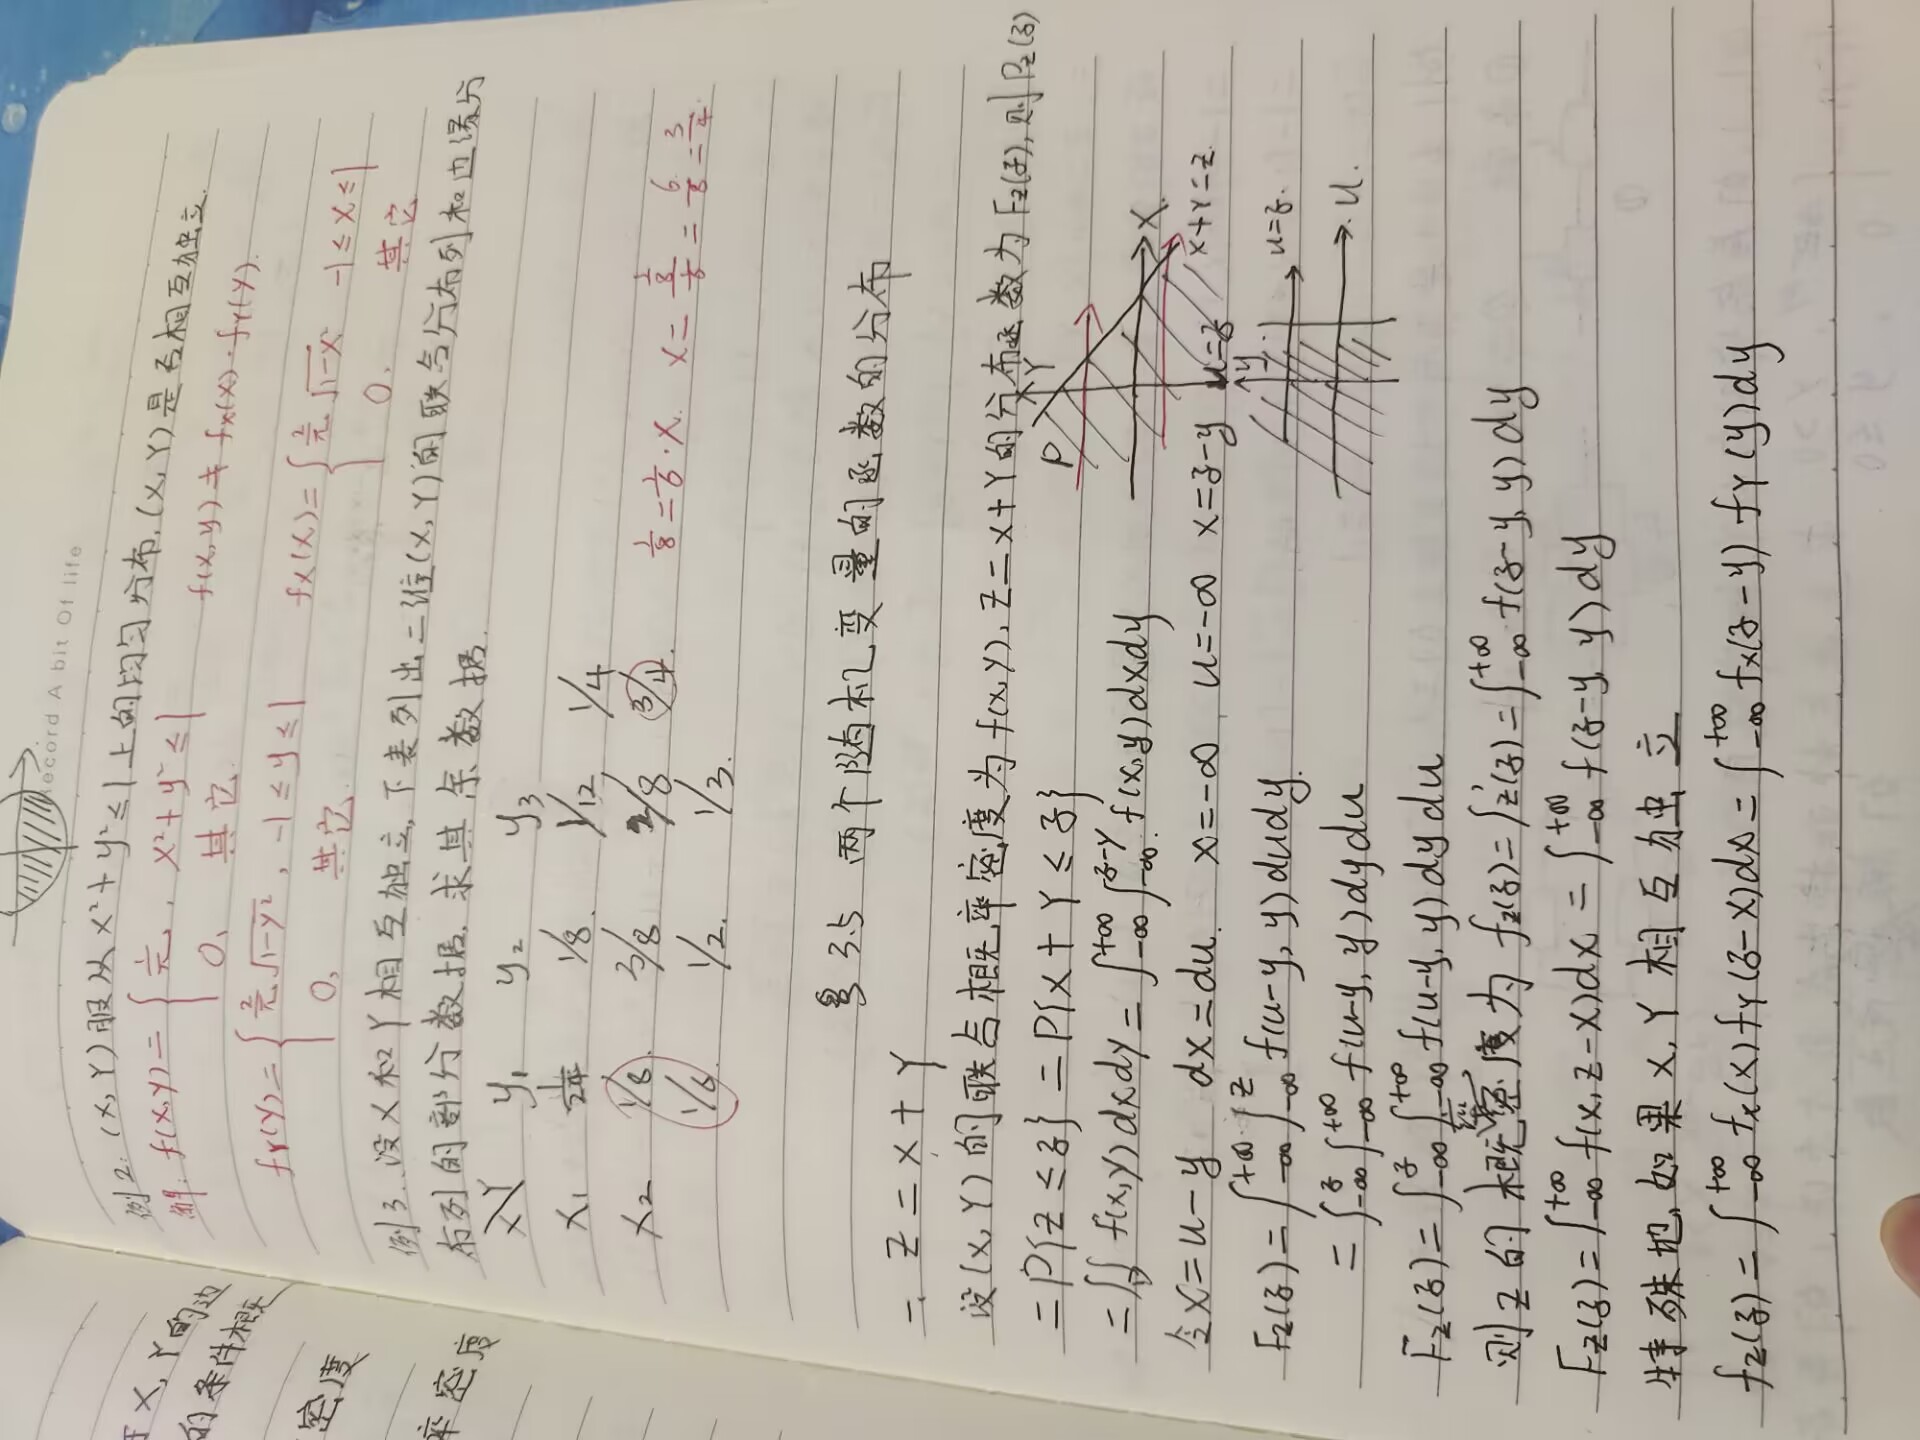 Record A bit Of life
例2. (X,Y)服从x²+y²≤1上的均匀分布,(X,Y)是否相互独立.
解: f(x,y)={1/π, x²+y²≤1 f(x,y)≠fx(x)·fY(y).
0, 其它
fY(y)={2/π√1-y², -1≤y≤1 fx(x)={2/π√1-x² -1≤x≤1
0, 其它 0, 其它
例3. 设X和Y相互独立,下表列出二维(X,Y)的联合分布列和边缘分
布列的部分数据,求其余数据.
X\Y y₁ y₂ y₃
x₁ 1/24 1/8 1/12 1/4
x₂ 1/8 3/8 2/8 3/4 1/8=1/6·x. x=1/8/1/6=6/8=3/4
1/6 1/2 1/3
3.5 两个随机变量的函数的分布
一. Z=X+Y
设(X,Y)的联合概率密度为f(x,y), Z=X+Y的分布函数为Fz(z),则Fz(z)
=P{Z≤z}=P{X+Y≤z}
=∬D f(x,y)dxdy=∫-∞^+∞∫-∞^z-y f(x,y)dxdy
D Y X x+Y=z.
令x=u-y dx=du. x=-∞ u=-∞ x=z-y u=z
Fz(z)=∫-∞^+∞∫-∞^z f(u-y,y)dudy.
y u=z. u.
=∫-∞^z∫-∞^+∞ f(u-y,y)dydu
Fz(z)=∫-∞^z∫-∞^+∞ f(u-y,y)dydu
则Z的概率密度为fz(z)=Fz'(z)=∫-∞^+∞ f(z-y,y)dy
Fz(z)=∫-∞^+∞ f(x,z-x)dx=∫-∞^+∞ f(z-y,y)dy
特殊地,如果X,Y相互独立
fz(z)=∫-∞^+∞ fx(x)fY(z-x)dx=∫-∞^+∞ fx(z-y)fY(y)dy
X,Y的边
的条件概
密度
率密度